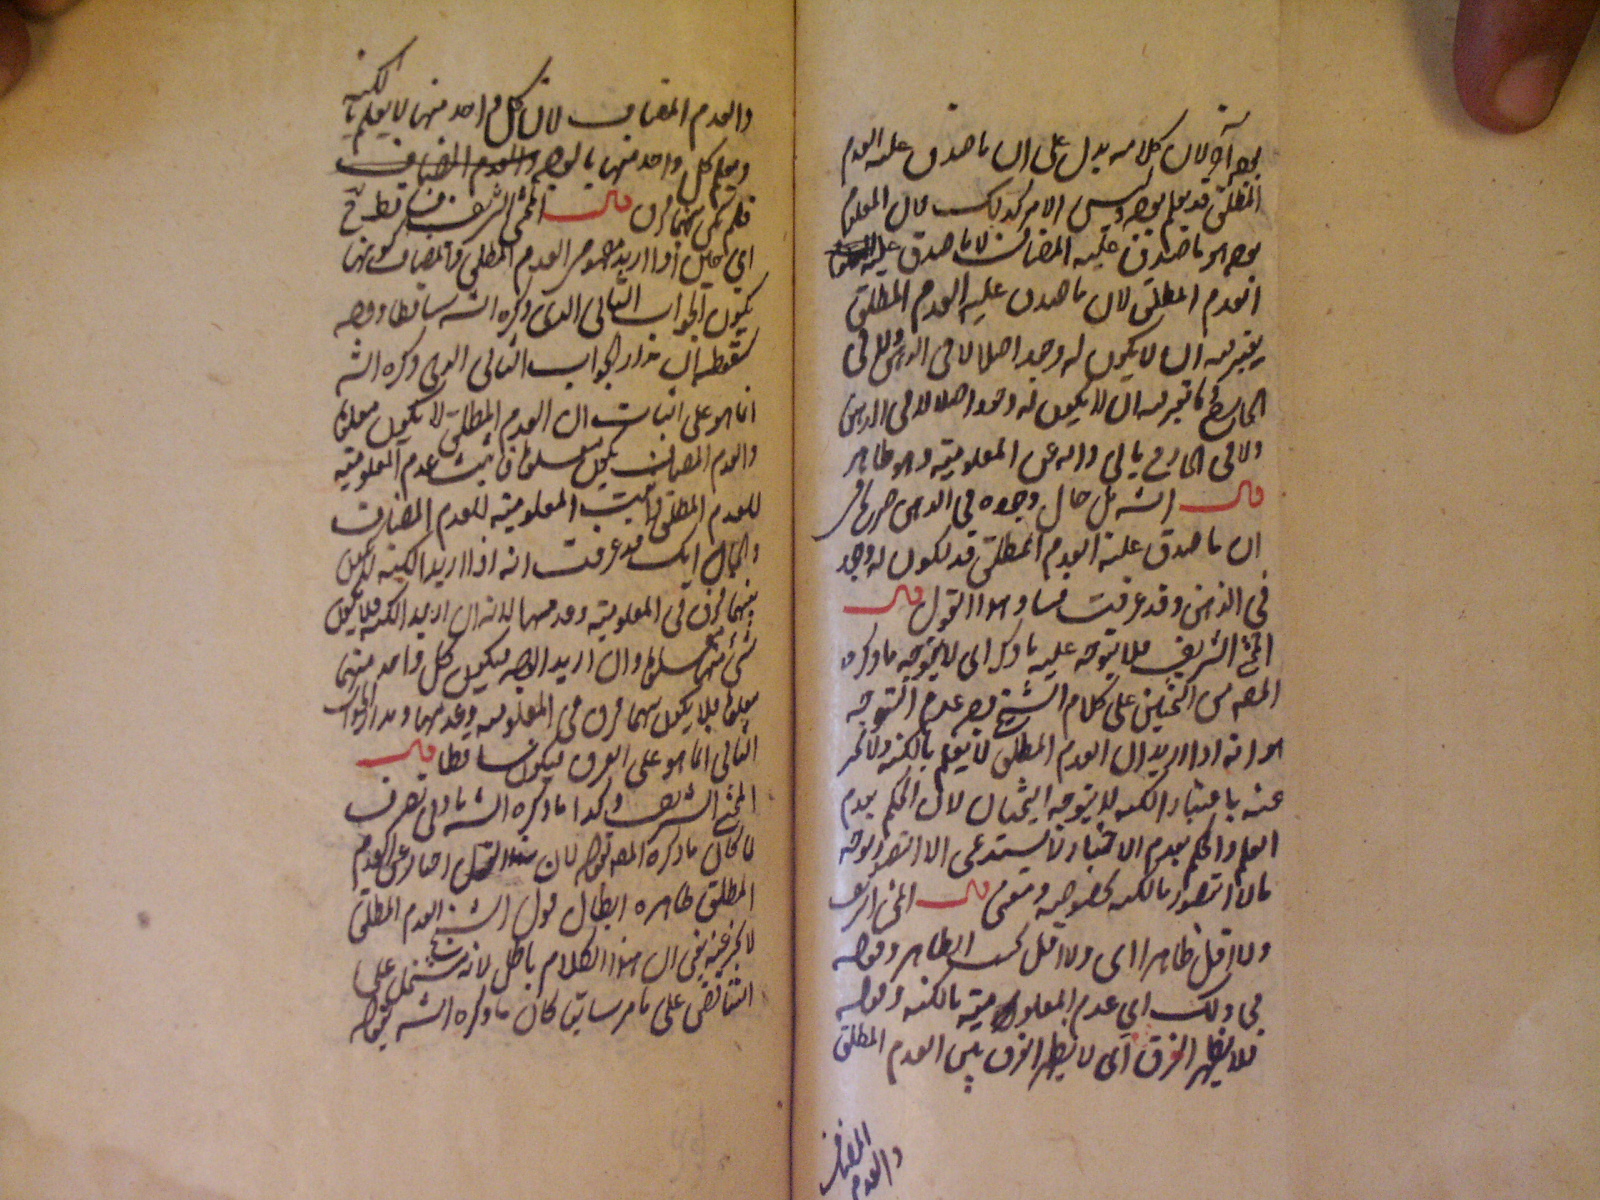 بوجه آخر لان كلامه يدل على ان ما صدق عليه العدم
المطلق قد يعلم بوجه وليس الامر كذلك فان المعلوم
بوجه هو ما صدق عليه المضاف لا ما صدق عليه
العدم المطلق لان ما صدق عليه العدم المطلق
يعتبر فيه ان لا يكون له وجود اصلا لا فى الذهن ولا فى
الخارج فما يعتبر فيه ان لا يكون له وجود اصلا لا فى الذهن
ولا فى الخارج يابى ذاته عن المعلومية وهو ظاهر
قال الشه بل حال وجوده فى الذهن صريح فى
ان ما صدق عليه العدم المطلق قد يكون له وجود
فى الذهن وقد عرفت فساد هذا القول قال
المحشى الشريف فلا يتوجه عليه ما ذكر اى لا يتوجه ما ذكره
المصه من البحثين على كلام الشيخ وجه عدم التوجه
هو انه اذا اريد ان العدم المطلق لا يعلم بالكنه ولا يخبر
عنه باعتبار الكنه فلا يتوجه البحثان لان الحكم بعدم
العلم والحكم بعدم الاخبار لا يستدعى الا التصور بوجه
ما لا التصور بالكنه بخصوصه ومعنى قال المحشى الشريف
ولا اقل ظاهرا اى ولا اقل بحسب الظاهر وقوله
فى ذلك اى عدم المعلومية بالكنه وقوله
فلا يظهر الفرق اى لا يظهر الفرق بين العدم المطلق
والعدم المضاف
والعدم المضاف لان كل واحد منهما لا يعلم بالكنه
ويعلم كل واحد منهما بالوجه والعدم المضاف
فلم يكن بينهما فرق قال المحشى الشريف فسقط ح
اى حين اذا اريد مفهوم العدم المطلق والمضاف كونهما
يكون الجواب الثانى الذى ذكره الشه ساقطا ووجه
سقوطه ان مدار الجواب الثانى الذى ذكره الشه
انما هو على اثبات ان العدم المطلق لا يكون معلوما
والعدم المضاف يكون معلوما فاثبت عدم المعلومية
للعدم المطلق واثبت المعلومية للعدم المضاف
والحال انك قد عرفت انه اذا اريد الكنه لم يكن
بينهما فرق فى المعلومية وعدمها لانه ان اريد الكنه فلا يكون
شئ منهما معلوما وان اريد الوجه فيكون كل واحد منهما
معلوما فلا يكون بينهما فرق فى المعلومية وعدمها ومدار الجواب
الثانى انما هو على الفرق فيكون ساقطا قال
المحشى الشريف وكذا ما ذكره الشه بادنى تصرف
لما كان ما ذكره المصه بقوله لان اخبار عن العدم
المطلق ظاهره ابطال قول الشيخ العدم المطلق
لا يخبر عنه يعنى ان هذا الكلام باطل لانه مشتمل على
التناقض على ما مر سابقا كان ما ذكره الشه بقوله